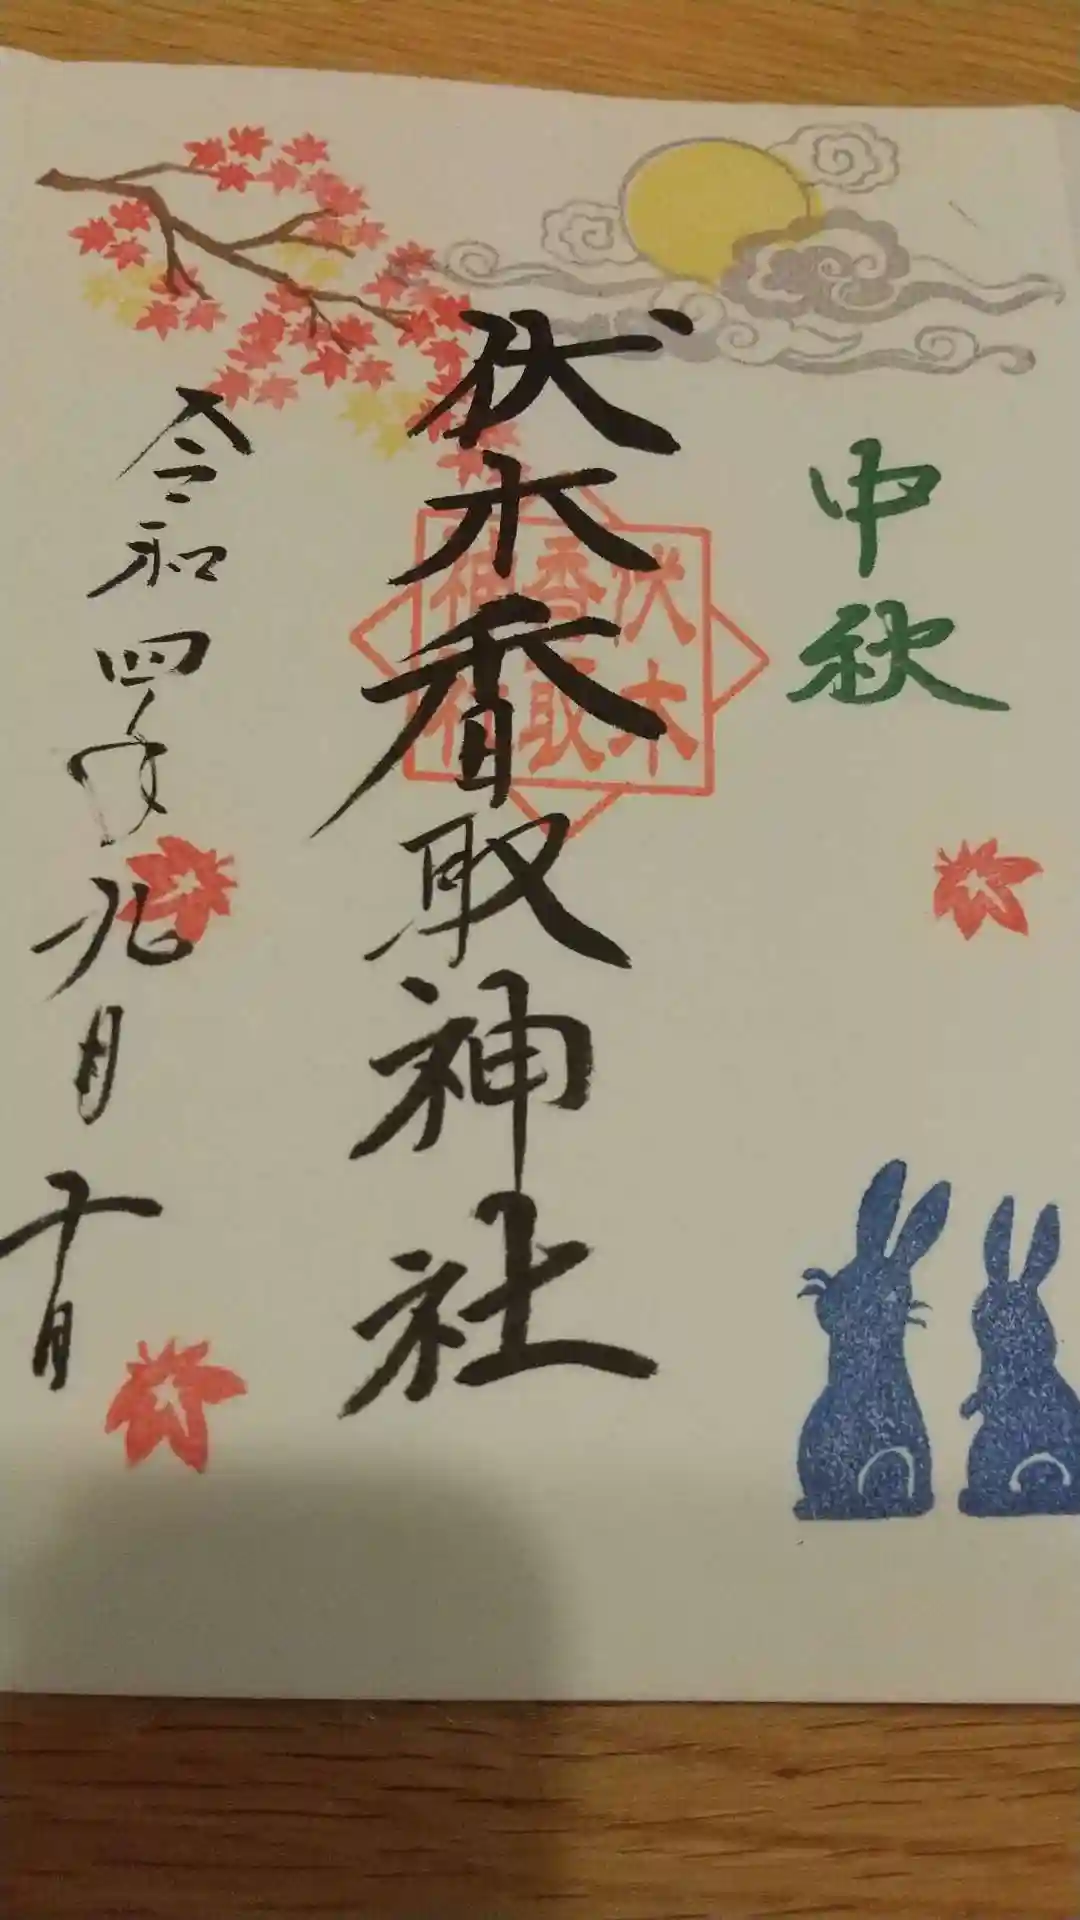 中秋
伏木香取神社
伏木
香取
神社
令和四年九月十日